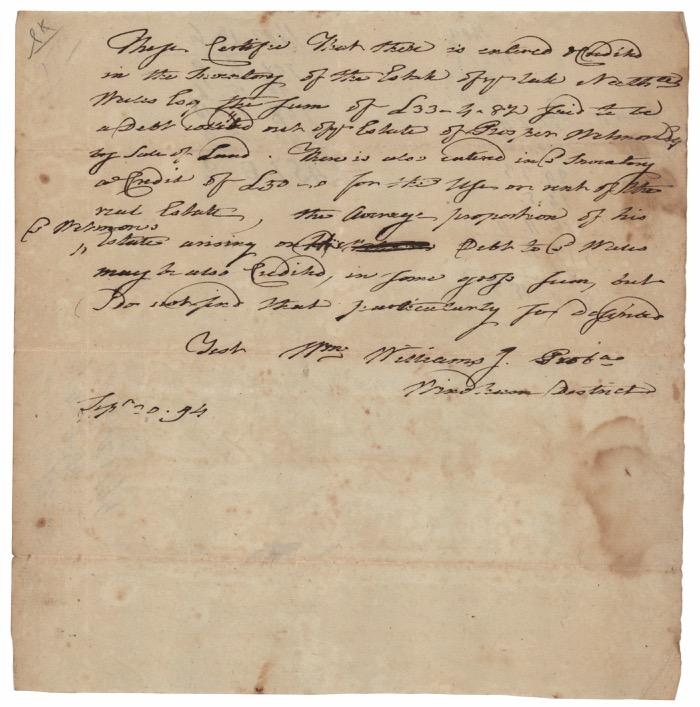 These Certifie That there is entered & Credited
in the Inventory of the Estate of ye late Nathll
Wales Esq the sum of £33-4-8½ said to be
a Debt out of ye Estate of Prosper Wetmore Esq
by Sale of Land. There is also entered in sd Inventory
a Credit of £30-.0 for the Use or rent of the
real Estate, the Average proportion of his
sd Wetmores
estate arising on Debt to sd Wales
may be also Credited, in some gross sum, but
I do not find that particularly so defined
Test Wm Williams J. Probae
Windham District
Sepr 20. 94